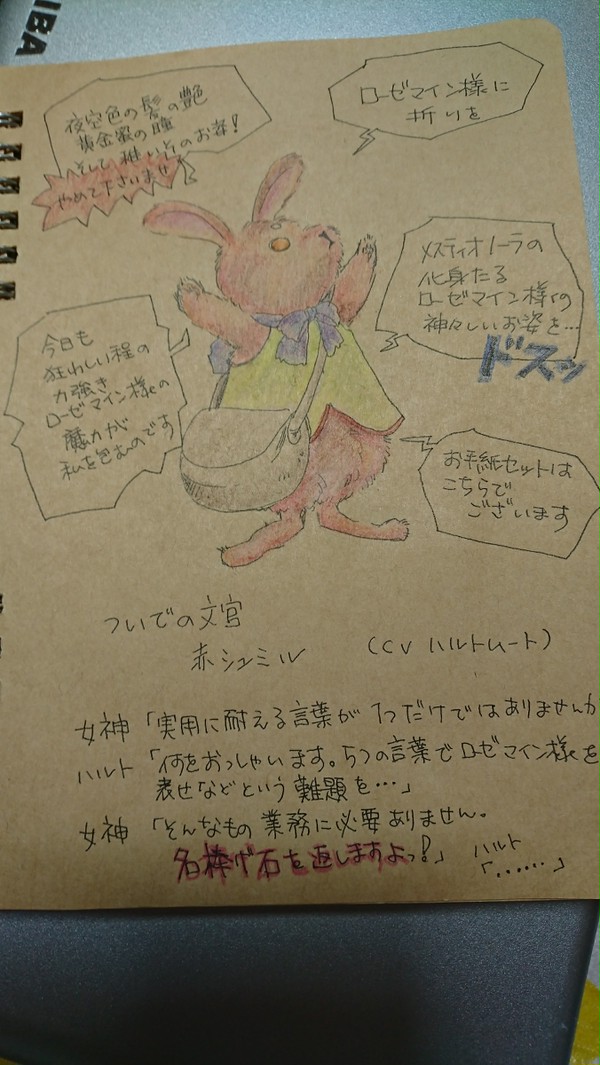 IBA
夜空色の髪の艶
黄金蜜の瞳
そして神いそのお姿!
やめて下さいませ
ローゼマイン様に
祈りを
メスティオノーラの
化身たる
ローゼマイン様の
神々しいお姿を…
ドスッ
今日も
狂わしい程の
力強き
ローゼマイン様の
魔力が
私を包むのです
お手紙セットは
こちらで
ございます
ついでの文官
赤シュミル (CV ハルトムート)
女神「実用に耐える言葉が1つだけではありませんか
ハルト「何をおっしゃいます。5つの言葉でローゼマイン様を
表せなどという難題を…」
女神「そんなもの業務に必要ありません。
名捧げ石を返しますよっ!」 ハルト
「……」